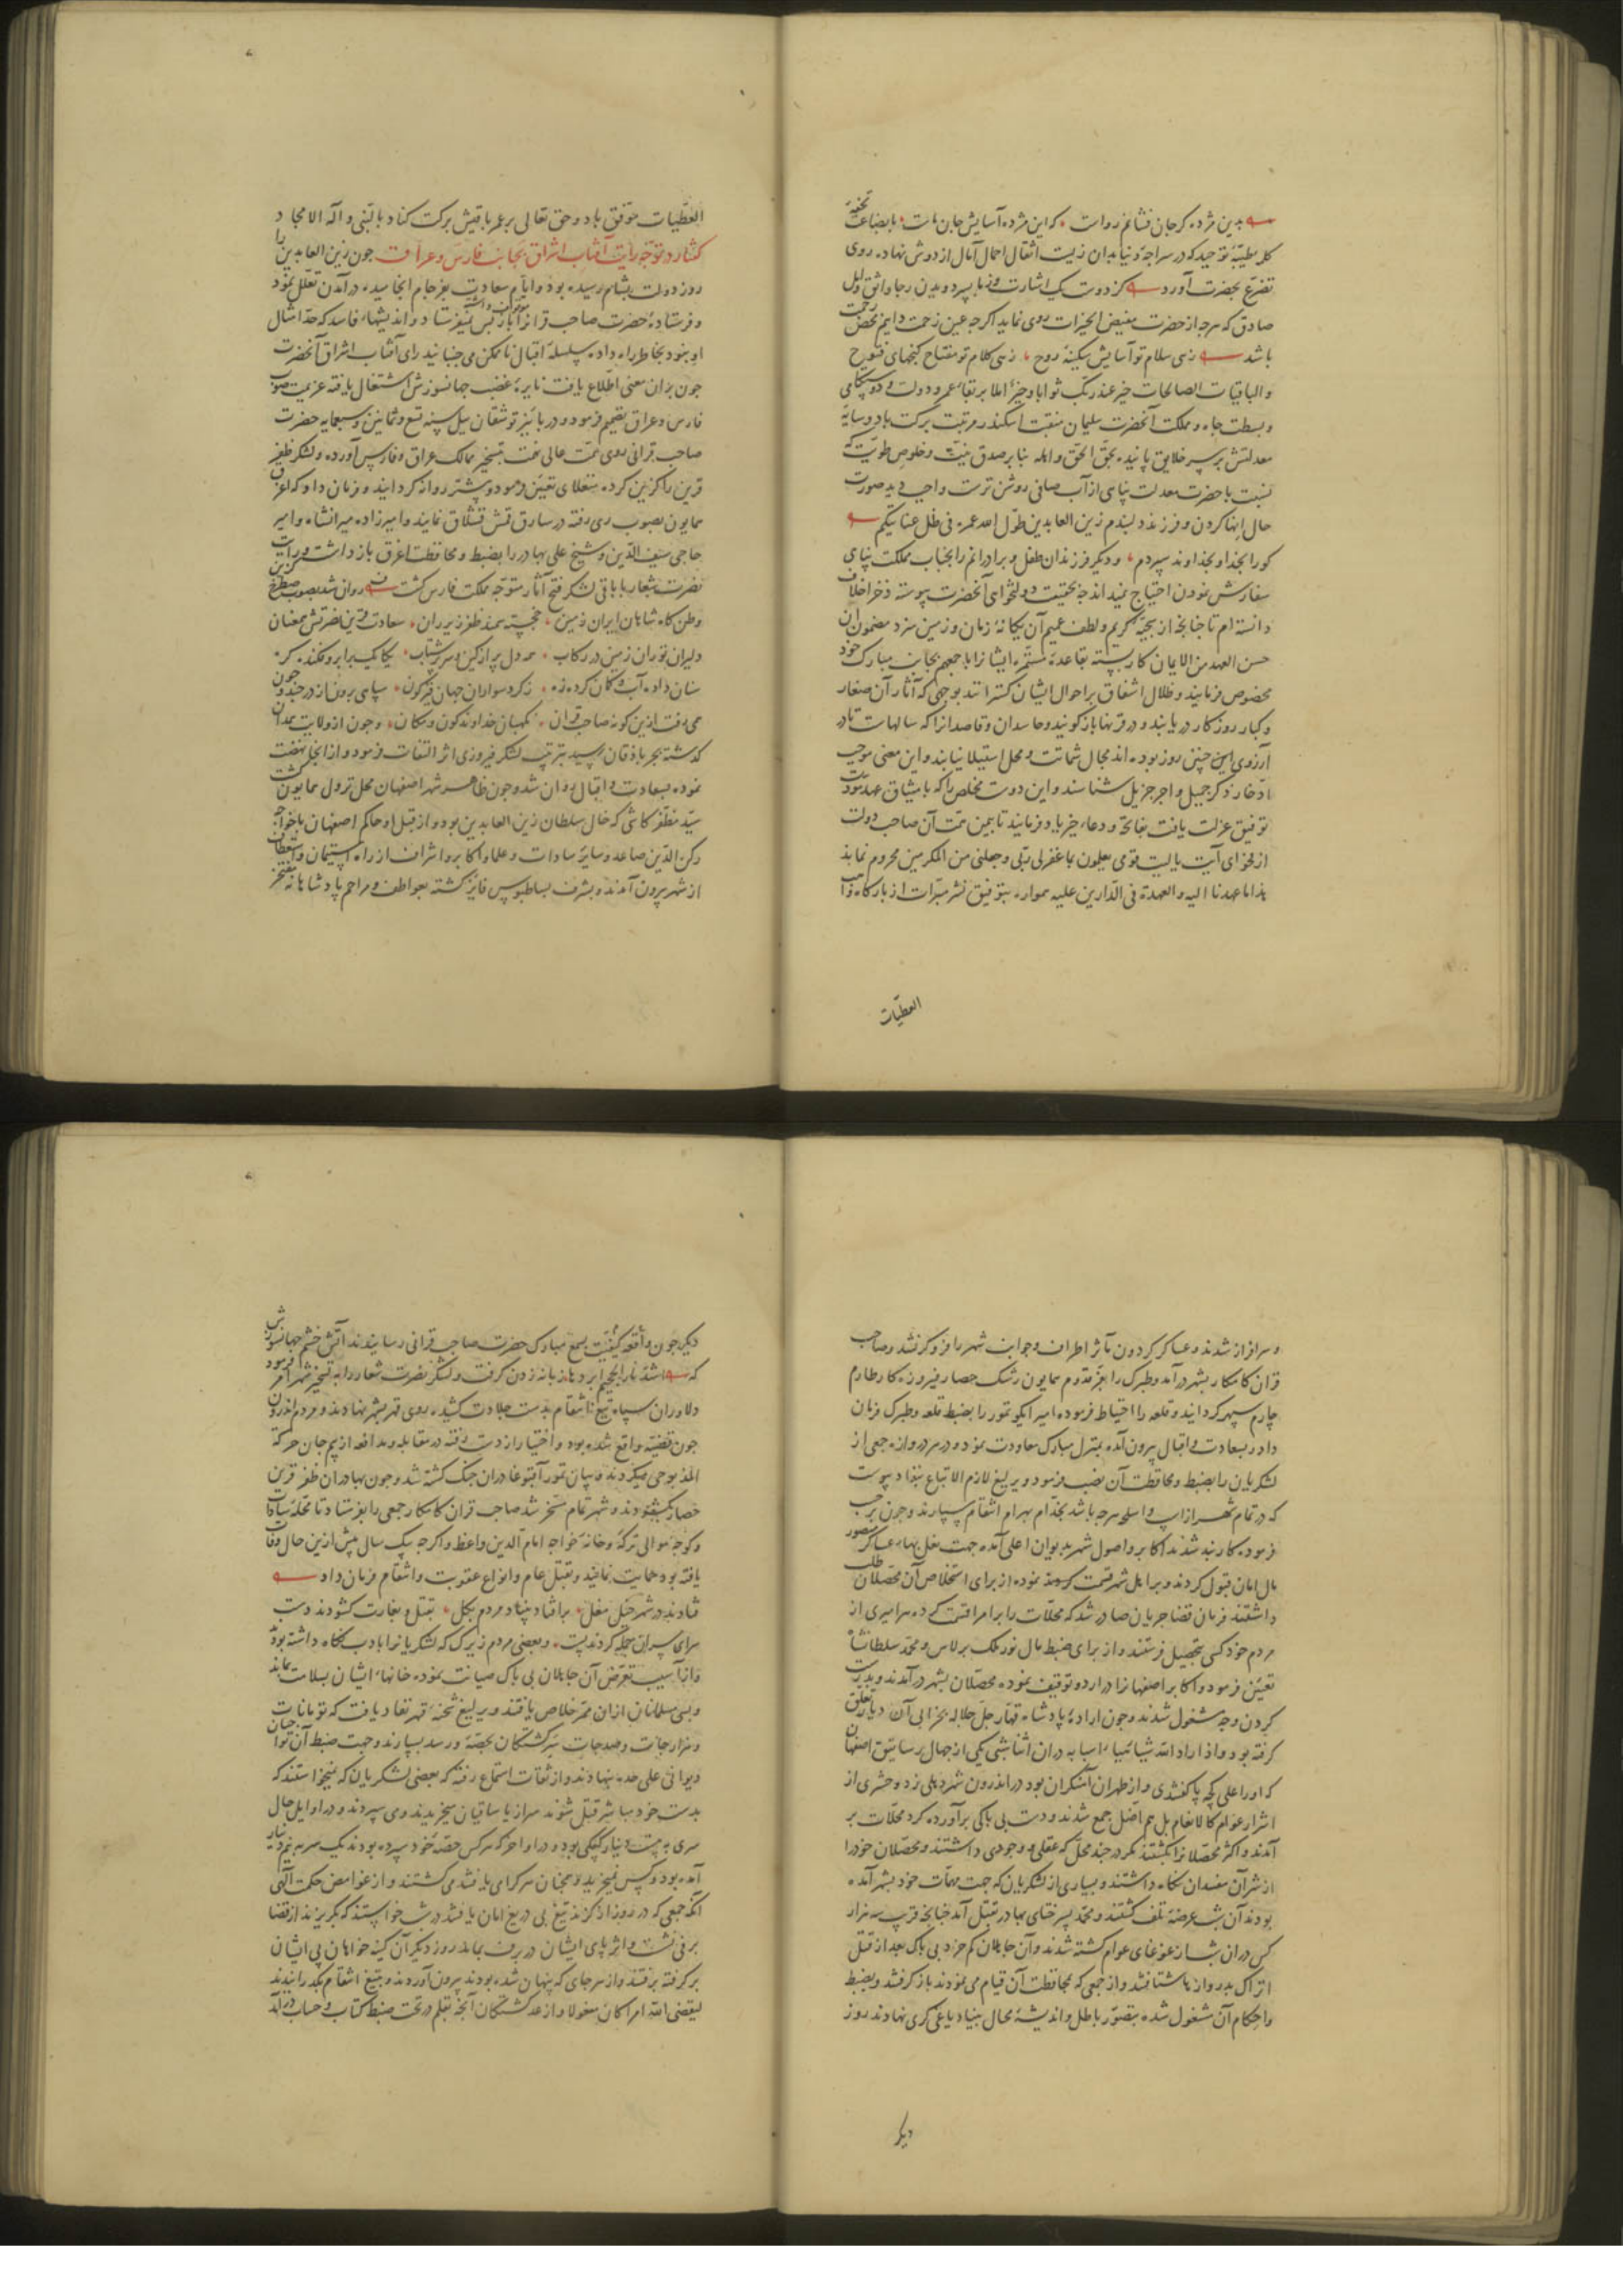 بدین مژده گر جان فشانم رواست که این مژده آسایش جان ماست با بضاعت تحفه
کلمه طیبه توحید که در سراچه دنیا بدان زیست اثقال احمال آمال از دوش نهاده روی
تضرع بحضرت آورد کز دوست یک اشارت وز ما بسر دویدن رجا واثق و امل
صادق که هرچه از حضرت مفیض الخیرات روی نماید اگرچه عین زحمت دانیم محض رحمت
باشد زهی سلام تو آسایش سکینه روح زهی کلام تو مفتاح گنجهای فتوح
والباقیات الصالحات خیر عند ربک ثوابا و خیر املا بر بقاء عمر و دولت و دوستکامی
و بسطت جاه و مملکت آنحضرت سلیمان منقبت اسکندر مرتبت برکت باد و سایه
معدلتش بر سر خلایق پاینده بحق الحق و اهله بنا بر صدق نیت و خلوص طویت که
نسبت با حضرت معدلت پناهی از آب صافی روشن ترست واجب دید صورت
حال انها کردن و فرزند دلبندم زین العابدین طول الله عمره فی ظل عنایتکم
کورا بخدا و بخداوند سپردم و دیگر فرزندان طفل و برادرانم را بجناب مملکت پناهی
سفارش نمودن احتیاج نمیداند چه بحقیقت دولتخواهی آنحضرت پیوسته ذخر اخلاف
دانسته ام تا چنانچه از سجیه کریم و لطف عمیم آن یگانه زمان و زمین سزد مضمون ان
حسن العهد من الایمان کار بسته بقاعده مستمره ایشانرا باجمعهم بجانب مبارک خود
مخصوص فرمایند و ظلال اشفاق بر احوال ایشان گسترانند بوجهی که آثار آن صغار
و کبار روزگار دریابند و در قرنها بازگویند و حاسدان و قاصدانرا که سالهاست تا در
آرزوی این چنین روز بوده اند مجال شماتت و محل استیلا نیابند و این معنی موجب
ادخار ذکر جمیل و اجر جزیل شناسند و این دوست مخلص را که با میثاق عهد مودت
توفیق عزلت یافت بفاتحه و دعاء خیر یاد فرمایند تا بیمن همت آن صاحب دولت
از فحوای آیت یا لیت قومی یعلمون بما غفرلی ربی و جعلنی من المکرمین محروم نماند
هذا ما عهدنا الیه و العهدة فی الدارین علیه همواره بتوفیق نشر مبرات از بارگاه واهب
العطیات
العطیات موفق باد و حق تعالی بر عمر باقیش برکت کناد بالنبی و آله الامجاد
گفتار در توجه رایت آفتاب اشراق بجانب فارس و عراق چون زین العابدین را
روز دولت بشام رسیده بود و ایام سعادت بفرجام انجامیده در آمدن تعلل نمود
و فرستاده حضرت صاحب قرانرا باز پس نمیفرستاد و اندیشهاء فاسد که حد امثال
او نبود بخاطر راه داده سلسله اقبال ناممکن می جنبانید رای آفتاب اشراق آنحضرت
چون بران معنی اطلاع یافت نایره غضب جهانسوزش اشتعال یافته عزیمت صوب
فارس و عراق تصمیم فرمود و در پائیز توشقان ییل سنه تسع و ثمانین و سبعمایه حضرت
صاحب قرانی روی همت عالی نهمت بتسخیر ممالک عراق و فارس آورده و لشکر ظفر
قرین را گزین کرده منغلای تعیین فرمود و پیشتر روانه گردانید و فرمان داد که اغرق
همایون بصوب ری رفته در سارق قمش قشلاق نمایند و امیرزاده میرانشاه و امیر
حاجی سیف الدین و شیخ علی بهادر را بضبط و محافظت اغرق بازداشت و رایت
نصرت شعار با باقی لشکر فتح آثار متوجه مملکت فارس گشت روان شد بصوب صطخر گزین
وطن گاه شاهان ایران زمین خجسته سمند ظفر زیر ران سعادت قرین نصرتش همعنان
دلیران توران زمین در رکاب همه دل پر از کین و سر پر شتاب یکایک برابرو فکنده گره
سنان داده آب و کمان کرده زه ز گرد سواران جهان قیرگون سپاهی برون از در چند و چون
همی رفت ازین گونه صاحب قران نگهبان خداوند کون و مکان و چون از ولایت همدان
گذشته بجرباذقان رسید بترتیب لشکر فیروزی اثر التفات فرمود و از انجا نهضت
نموده بسعادت و اقبال روان شد و چون ظاهر شهر اصفهان محل نزول همایون گشت
سید مظفر کاشی که خال سلطان زین العابدین بود و از قبل او حاکم اصفهان با خواجه
رکن الدین صاعد و سایر سادات و علما و اکابر و اشراف از راه استیمان و استعطاف
از شهر بیرون آمدند و بشرف بساط بوس فایز گشته بعواطف و مراحم پادشاهانه مفتخر
و سرافراز شدند و عساکر گردون مآثر اطراف و جوانب شهر را فرو گرفتند و صاحب
قران کامکار بشهر درآمد و طبرک را بفر قدوم همایون رشک حصار فیروزه کار طارم
چارم سپهر گردانید و قلعه را احتیاط فرموده امیر ایکو تمور را بضبط قلعه و طبرک فرمان
داد و بسعادت و اقبال بیرون آمده بمنزل مبارک معاودت نمود و در هر دروازه جمعی از
لشکریان را بضبط و محافظت آن نصب فرمود و یرلیغ لازم الاتباع بنفاذ پیوست
که در تمام شهر از اسب و اسلحه هرچه باشد بخدام بهرام انتقام سپارند و چون بر حسب
فرموده کار بند شدند اکابر و اصول شهر بدیوان اعلی آمده جهت نعل بهاء عساکر منصور
مال امان قبول کردند و بر اهل شهر قسمت نموده از برای استخلاص آن محصلان طلب
داشتند فرمان قضا جریان صادر شد که محلات را بر امرا قسمت کرده هر امیری از
مردم خود کسی بتحصیل فرستند و از برای ضبط مال نور ملک برلاس و محمد سلطانشاه
تعیین فرمود و اکابر اصفهانرا در اردو توقیف نموده محصلان بشهر درآمدند و بدست
کردن وجه مشغول شدند و چون اراده پادشاه قهار جل جلاله بخرابی آن دیار تعلق
گرفته بود و اذا اراد الله شیئا هیأ اسبابه در ان اثنا شبی یکی از جهال رساتیق اصفهان
که او را علی کچه پا گفتندی و از طهران آهنگران بود در اندرون شهر دهلی زد و حشری از
اشرار عوام کالانعام بل هم اضل جمع شدند و دست بی باکی برآورده گرد محلات بر
آمدند و اکثر محصلانرا بکشتند مگر در چند محل که عقلی و وجودی داشتند و محصلان خود را
از شر آن مفسدان نگاه داشتند و بسیاری از لشکریان که جهت مهمات خود بشهر آمده
بودند آن شب عرضه تلف گشتند و محمد پسر ختای بهادر بقتل آمد چنانچه قریب سه هزار
کس دران شب از غوغای عوام کشته شدند و آن جاهلان کم خرد بی باک بعد از قتل
اتراک بدروازها شتافتند و از جمعی که بمحافظت آن قیام می نمودند باز گرفتند و بضبط
و احکام آن مشغول شده بتصور باطل و اندیشه محال بنیاد یاغی گری نهادند روز
دیگر
دیگر چون واقعه کیفیت بسمع مبارک حضرت صاحب قرانی رسانیدند آتش خشم جهانسوزش
که اشد نار الجحیم ابردها زبانه زدن گرفت و لشکر نصرت شعار را به تسخیر شهر امر فرمود
دلاوران سپاه تیغ انتقام بدست جلادت کشیده روی قهر بشهر نهادند و مردم اندرون
چون قضیه واقع شده بود و اختیار از دست رفته در مقابله و مدافعه از بیم جان حرکة
المذبوحی میکردند و بیان تمور آقبوغا دران جنگ کشته شد و چون بهادران ظفر قرین
حصار بگشودند و شهر تمام مسخر شد صاحب قران کامکار جمعی را بفرستاد تا محله سادات
و کوچه موالی ترکه و خانه خواجه امام الدین واعظ و اگرچه یک سال پیش ازین حال وفات
یافته بود حمایت نمایند و بقتل عام و انواع عقوبت و انتقام فرمان داد
فتادند در شهر خیل مغل برافتاد بنیاد مردم بکل بقتل و بغارت گشودند دست
سرای سران جمله کردند پست و بعضی مردم زیرک که لشکریانرا بادب نگاه داشته بودند
و از آسیب تعرض آن جاهلان بی باک صیانت نموده خانهاء ایشان بسلامت بماند
و بسی مسلمانان ازان ممر خلاص یافتند و یرلیغ شحنه قهر نفاذ یافت که تومانات
و هزارجات و صدجات سر کشتگان بحصه و رسد بسپارند و جهت ضبط آن تواجیان
دیوانی علی حده بنهادند و از ثقات استماع رفته که بعضی لشکریان که نمیخواستند که
بدست خود مباشر قتل شوند سر از یاساقیان میخریدند و می سپردند و در اوایل حال
سری به بیست دینار کپکی بود و در اواخر که هر کس حصه خود سپرده بودند یک سر به نیم دینار
آمده بود و کس نمیخرید و همچنان هر کرا می یافتند می کشتند و از غوامض حکمت الهی
آنکه جمعی که در روز از گزند تیغ بی دریغ امان یافتند در شب خواستند که بگریزند از قضا
برفی نشست و اثر پای ایشان در برف بماند روز دیگر آن کینه خواهان پی ایشان
برگرفته برفتند و از هر جای که پنهان شده بودند بیرون آوردند و بتیغ انتقام بگذرانیدند
لیقضی الله امرا کان مفعولا و از عدد کشتگان آنچه بقلم در تحت ضبط کتاب و حساب درآمد